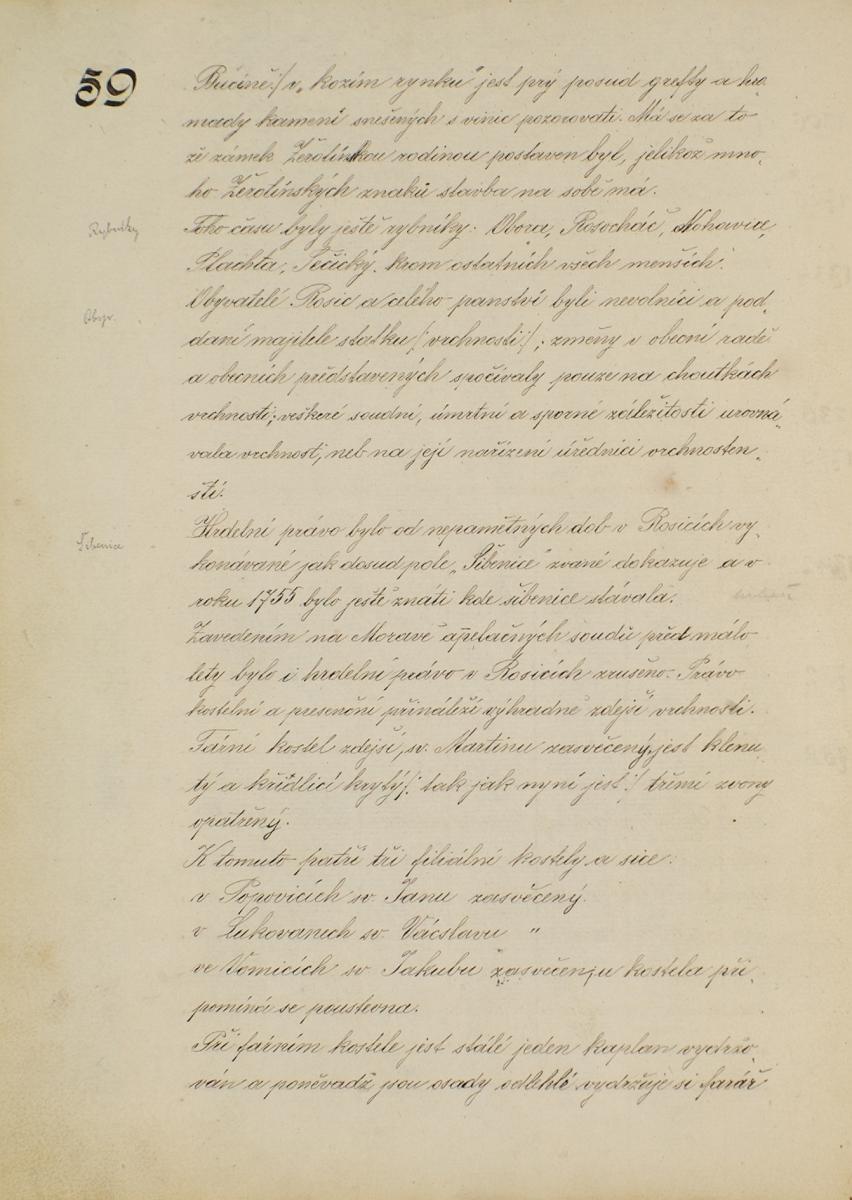 59
Bučíně:/ v „kozím rynku“ jest prý posud grefty a hro„
mady kamení snešených s vinic pozorovati. Má se za to
že zámek Žerotínskou rodinou postaven byl, jelikož mno„
ho Žerotínských znaků stavba na sobě má.
Rybníky
Toho času byly ještě rybníky: Obora, Rosocháč, Nohavice,
Plachta, Řečický, krom ostatních všech menších.
Obyv.
Obyvatelé Rosic a celého panství byli nevolníci a pod„
daní majitele statku /:vrchnosti:/; změny v obecní radě
a obecních představených spočívaly pouze na choutkách
vrchnosti; veškeré soudní, úmrtní a sporné záležitosti urovná„
vala vrchnost, neb na její nařízení úředníci vrchnosten„
ští.
Šibenice
Hrdelní právo bylo od nepamětných dob v Rosicích vy„
konávané jak dosud pole „Šibenice“ zvané dokazuje a v
roku 1755 bylo ještě znáti kde šibenice stávala.
Zavedením na Moravě apelačných soudů před málo
lety bylo i hrdelní právo v Rosicích zrušeno. Právo
kostelní a presenční přináleží výhradně zdejší vrchnosti.
Farní kostel zdejší, sv. Martinu zasvěcený, jest klenu„
tý a křidlicí krytý /: tak jak nyní jest :/ třemi zvony
opatřený.
K tomuto patří tři filiální kostely a sice:
v Popovicích sv. Janu zasvěcený.
v Lukovanech sv. Vácslavu „
ve Vomicích sv. Jakubu zasvěcenju kostela při„
pomíná se poustevna.
Při farním kostele jest stálé jeden kaplan vydržo„
ván a poněvadž jsou osady odlehlé vydržuje si farář